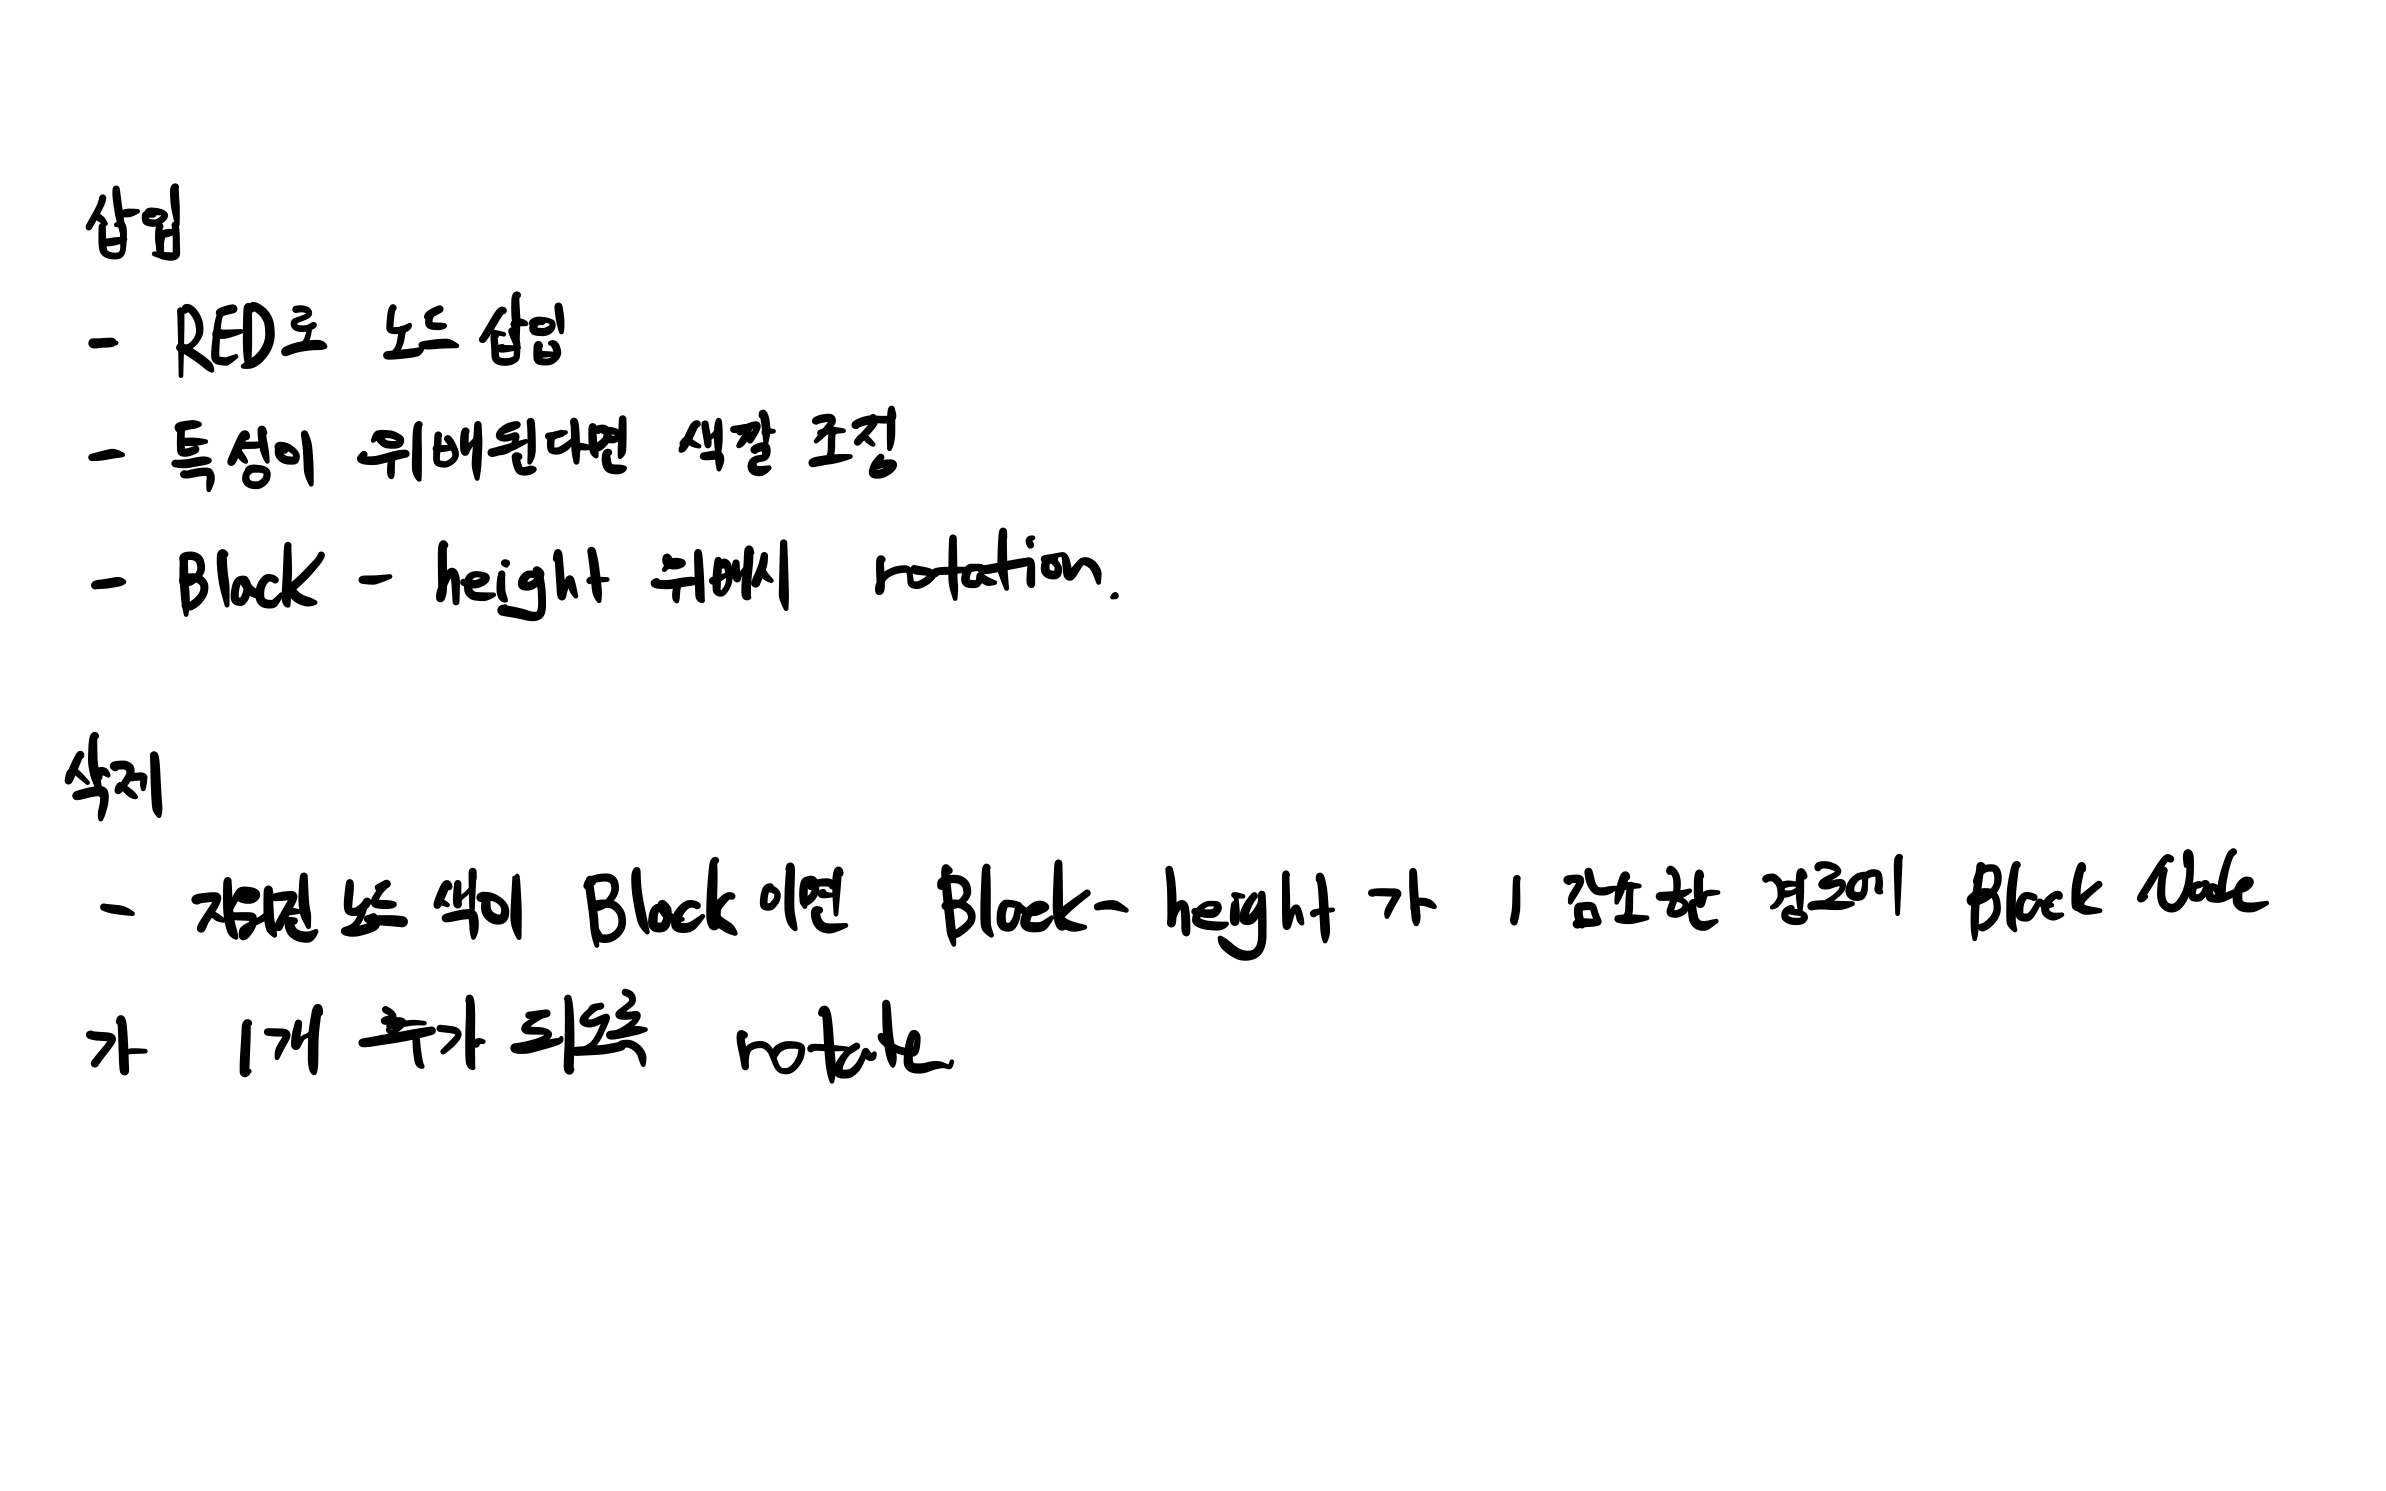 삽입
- RED로 노드 삽입
- 특성이 위배되면 색깔 조정
- Black - height 위배시 rotation.
삭제
- 제거된 노드 색이 Black 이면 Black - height가 1 감소한 쪽에 Black node
가 1개 추가 되도록 rotate